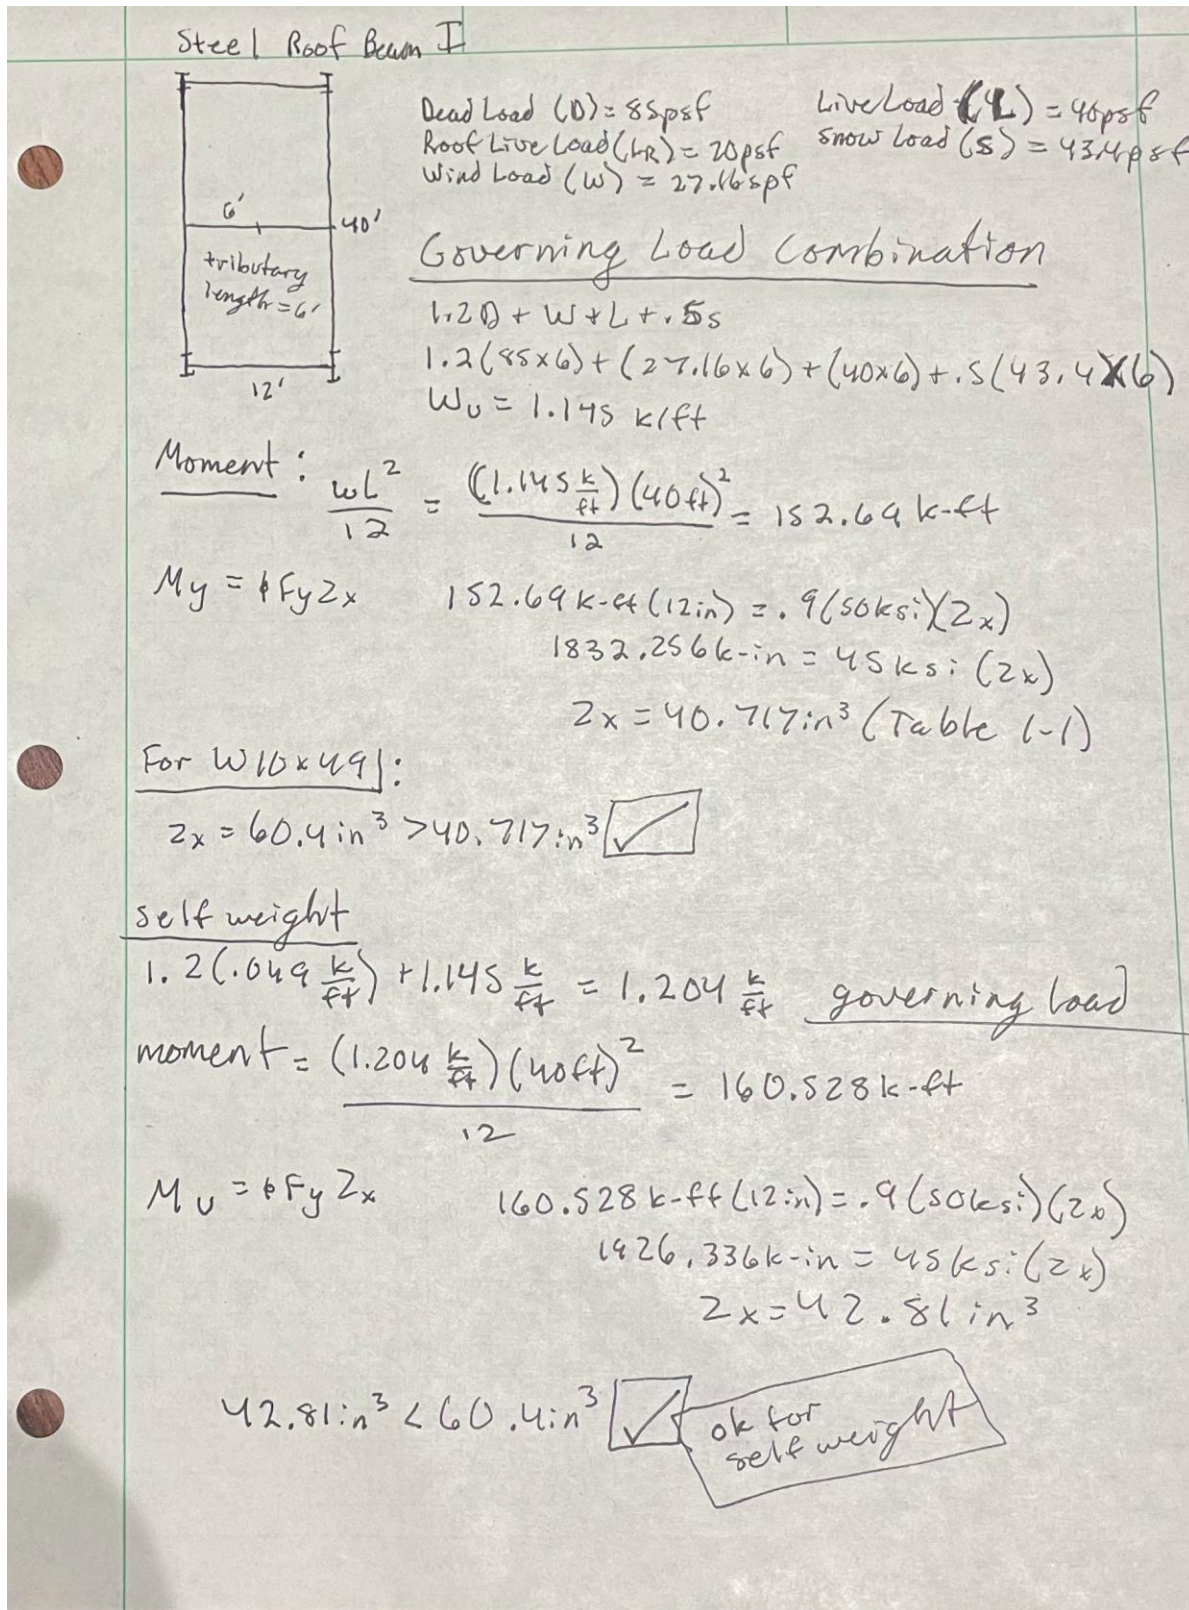 Steel Roof Beam I
Dead Load (D) = 85psf
Roof Live Load (LR) = 20psf
Wind Load (W) = 27.16spf
Live Load (L) = 40psf
Snow Load (S) = 43.4psf
6'
40'
tributary
length = 6'
12'
Governing Load Combination
1.2D + W + L + .5s
1.2(85x6) + (27.16x6) + (40x6) + .5(43.4)(6)
Wu = 1.145 k/ft
Moment: wL²/12 = (1.145 k/ft)(40ft)²/12 = 152.69 k-ft
My = ϕFyZx
152.69 k-ft(12in) = .9(50ksi)(Zx)
1832.256k-in = 45ksi(Zx)
Zx = 40.717in³ (Table 1-1)
For W10x49:
Zx = 60.4in³ > 40.717in³ ✓
self weight
1.2(.049 k/ft) + 1.145 k/ft = 1.204 k/ft governing load
moment = (1.204 k/ft)(40ft)²/12 = 160.528k-ft
Mu = ϕFyZx
160.528k-ft(12in) = .9(50ksi)(Zx)
1926.336k-in = 45ksi(Zx)
Zx = 42.81in³
42.81in³ < 60.4in³ ✓
ok for
self weight